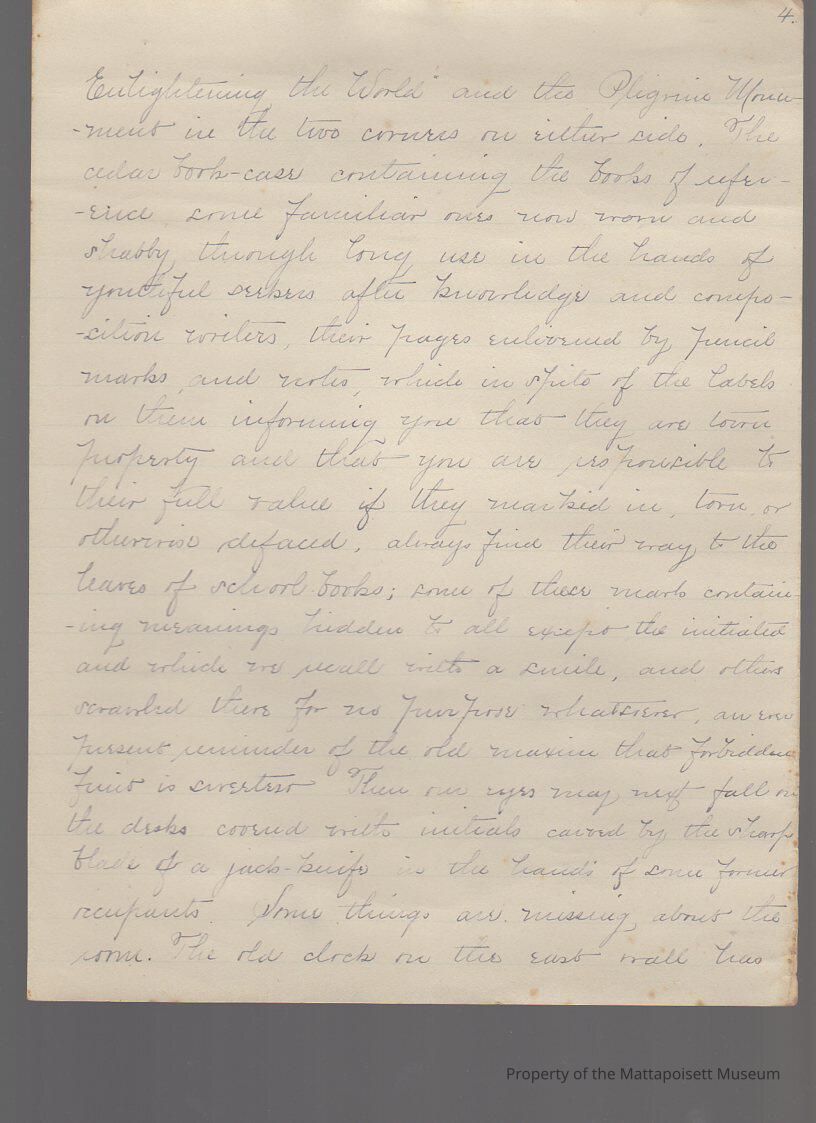 4.
Enlightening the World" and the Pilgrim Monu-
-ment in the two corners on either side. The
cedar book-case containing the books of refer-
-ence some familiar ones now worn and
shabby through long use in the hands of
youthful seekers after knowledge and compo-
-sition writers, their pages enlivened by pencil
marks, and notes, which in spite of the labels
on them informing you that they are town
property and that you are responsible to
their full value if they marked in, torn, or
otherwise defaced, always find their way to the
leaves of school-books; some of these marks contain-
-ing meanings hidden to all except the initiated
and which we recall with a smile, and others
scrawled there for no purpose whatsoever, an ever
present reminder of the old maxim that forbidden
fruit is sweetest Then our eyes may next fall on
the desks covered with initials carved by the sharp
blade of a jack-knife in the hands of some former
occupants. Some things are missing about the
room. The old clock on the east wall has
Property of the Mattapoisett Museum